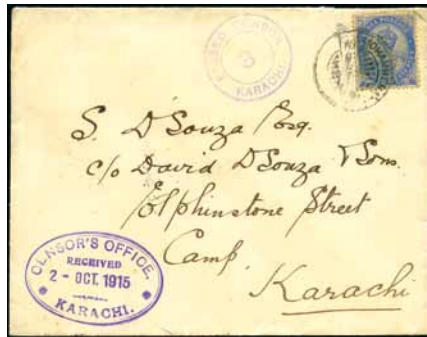 PASSED CENSOR
3
KARACHI.
S. D'Souza Esq.
c/o David D'Souza & Sons.
Elphinstone Street
Camp
Karachi
CENSOR'S OFFICE.
RECEIVED
2 - OCT. 1915
KARACHI.